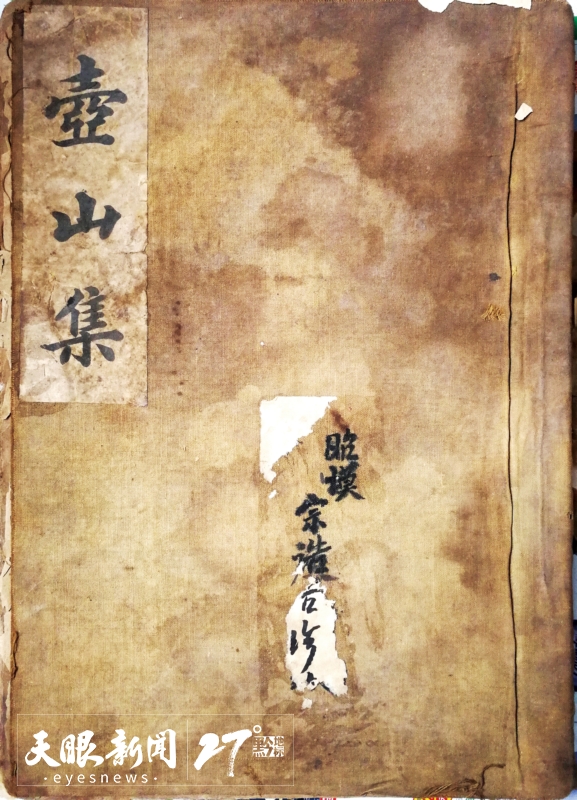 壺山集
昭模
宗造
天眼新闻
·eyesnews·
27°黔